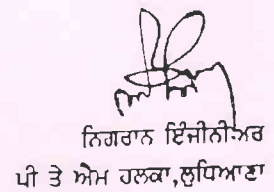 ਨਿਗਰਾਨ ਇੰਜੀਨੀਅਰ
ਪੀ ਤੇ ਐਮ ਹਲਕਾ,ਲੁਧਿਆਣਾ